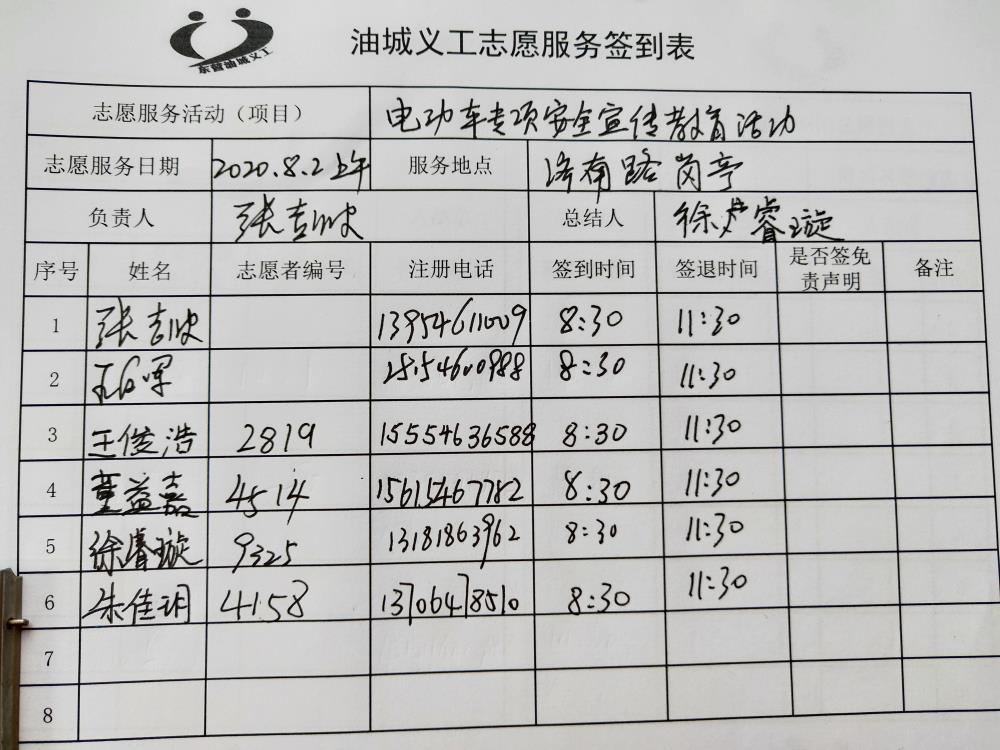 东营油城义工
油城义工志愿服务签到表
志愿服务活动（项目） 电动车专项安全宣传教育活动
志愿服务日期 2020.8.2上午 服务地点 济南路岗亭
负责人 张吉波 总结人 徐睿璇
序号 姓名 志愿者编号 注册电话 签到时间 签退时间 是否签免责声明 备注
1 张吉波 13954611009 8:30 11:30
2 8:30 11:30
3 王俊浩 2819 15554636588 8:30 11:30
4 董益嘉 4514 15615467782 8:30 11:30
5 徐睿璇 9325 13181863962 8:30 11:30
6 朱佳玥 4158 13706478510 8:30 11:30
7
8